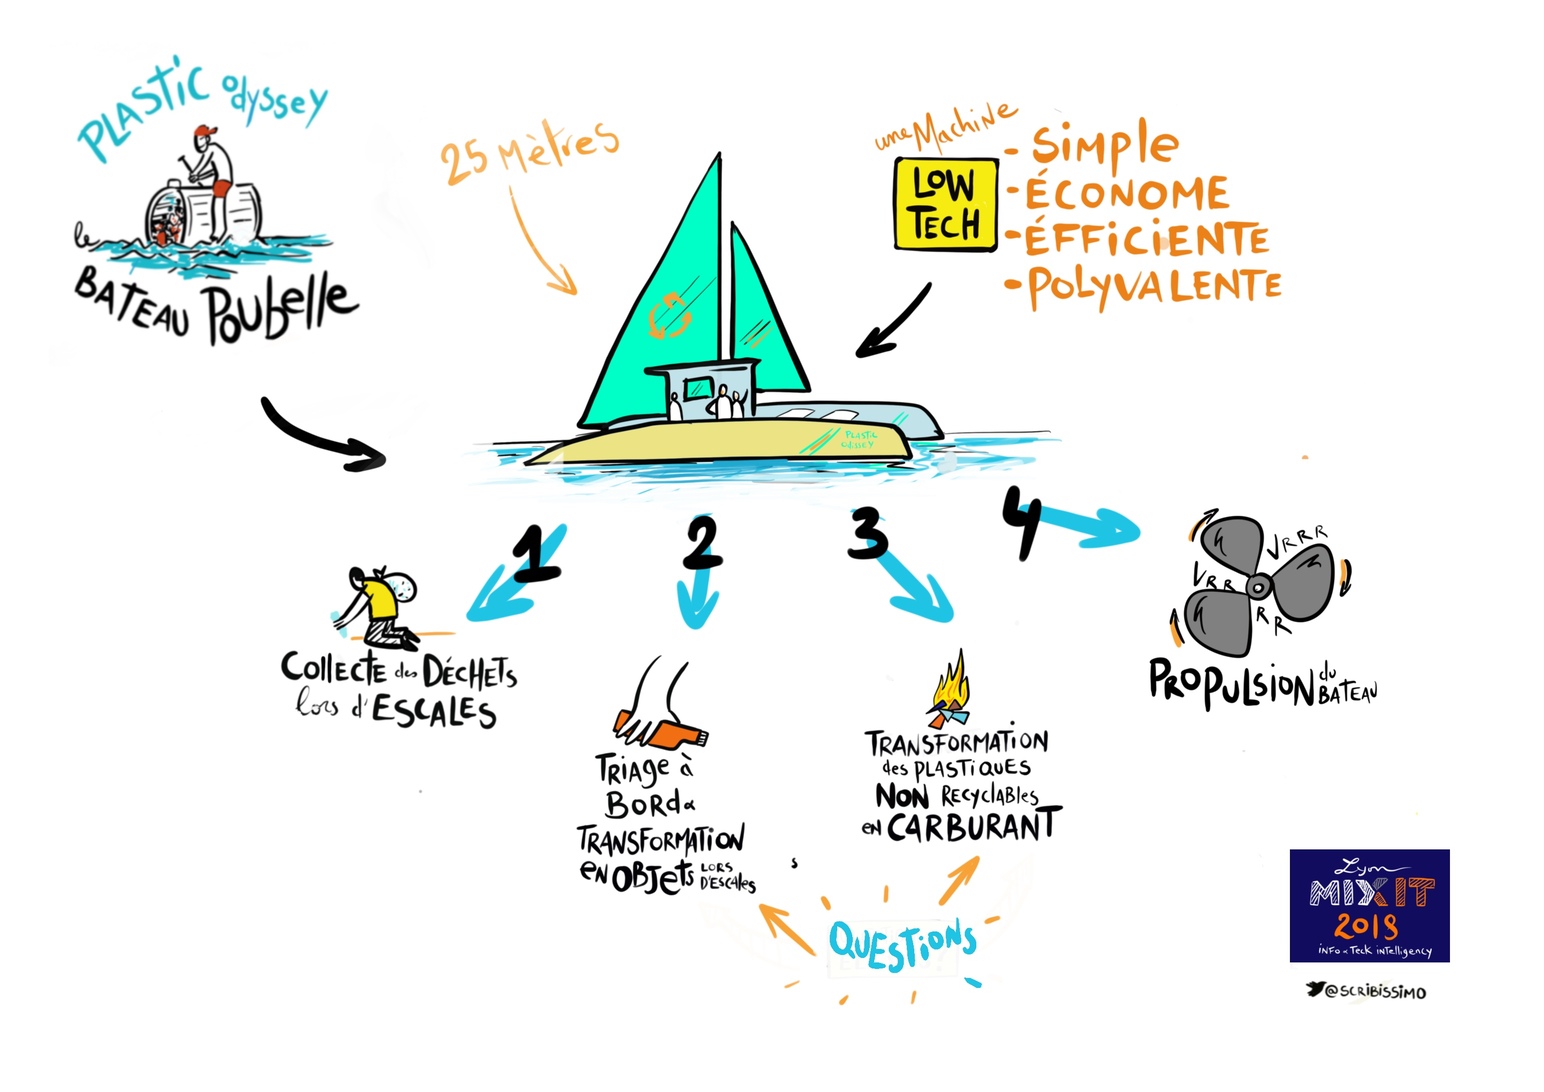 PLASTIC odyssey
le
BATEAU Poubelle
25 Mètres
une Machine
LOW
TECH
- Simple
- ÉCONOME
- ÉFFiCiENTE
- POLYVALENTE
PLASTIC
odyssey
1
2
3
4
COllECTE des DÉCHETS
lors d'ESCALES
TRiAge à
BORD &
TRANSFORMATION
en OBJets LORS
D'ESCAles
TRANSFORMATION
des PLASTIQUES
NON RECYclABles
eN CARBURANT
VRRR
VRR
RR
PROPULSiON du
BATEAU
s
QUESTiONS
Lyon
MIXIT
2018
iNFO & Teck iNTelligeNCY
@SCRiBiSSiMO